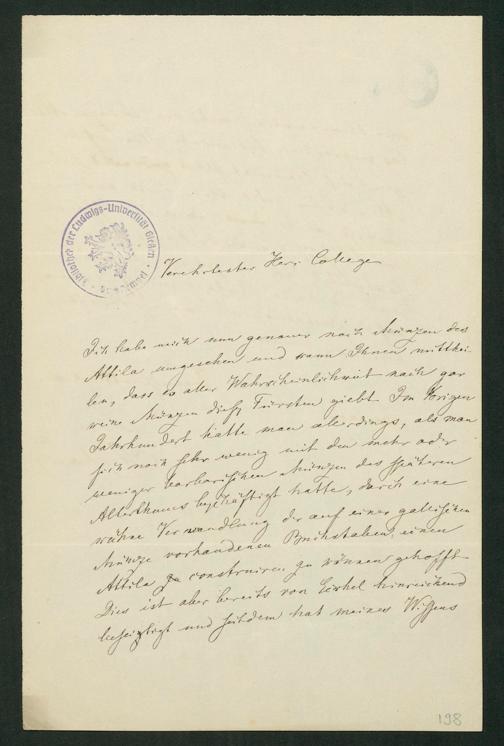 Bibliothek der Ludwigs-Universität Gießen
Verehrtester Herr College
Ich habe mich nun genauer nach Münzen des
Attila umgesehen und kann Ihnen mitthei-
len, dass es aller Wahrscheinlichkeit nach gar
keine Münzen dieses Fürsten giebt. Im vorigen
Jahrhundert hatte man allerdings, als man
sich noch sehr wenig mit den mehr oder
weniger barbarischen Münzen des späteren
Alterthums beschäftigt hatte, durch eine
kühne Verwandlung der auf einer gallischen
Münze vorhandenen Buchstaben, einen
Attila zu construiren zu können gehofft.
Dies ist aber bereits von Eckhel hinreichend
beseitigt und seitdem hat meines Wissens
198